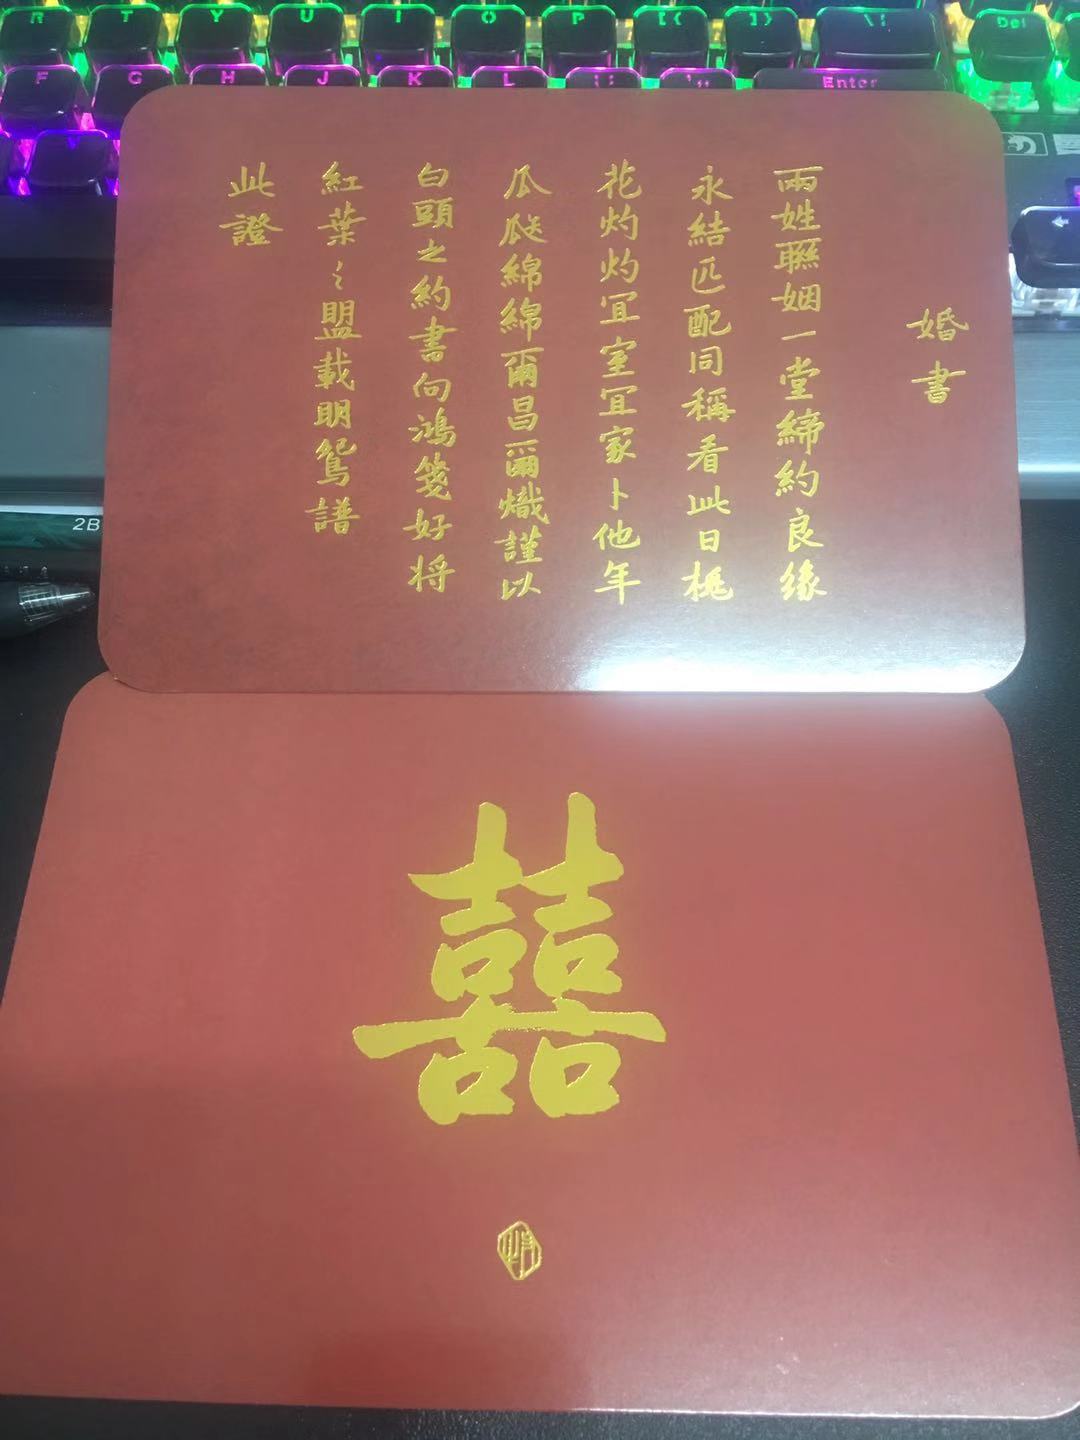 R T Y U I O P [{ ]} \| Del
F G H J K L Enter
2B
婚書
兩姓聯姻一堂締約良緣
永結匹配同稱看此日桃
花灼灼宜室宜家卜他年
瓜瓞綿綿爾昌爾熾謹以
白頭之約書向鴻箋好將
紅葉之盟載明鴛譜
此證
囍